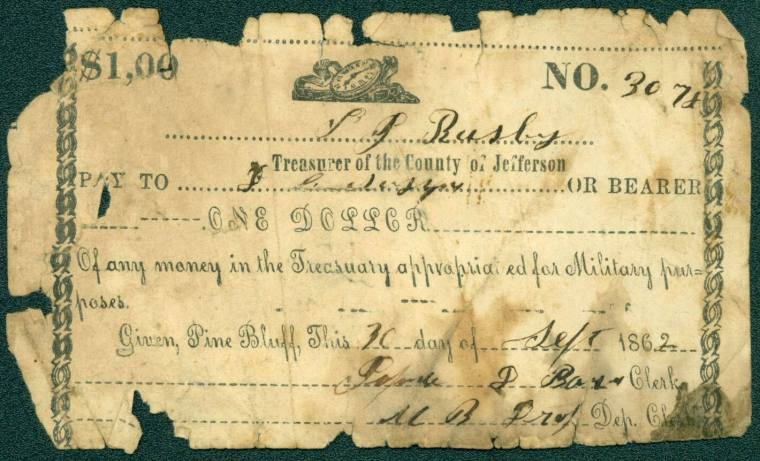 $1,00 NO. 3074
Rusby
Treasurer of the County of Jefferson
PAY TO OR BEARER
ONE DOLLAR
Of any money in the Treasury appropriated for Military pur=
poses.
Given, Pine Bluff, This 30 day of Sept 1862
Clerk
M B Dep. Clerk